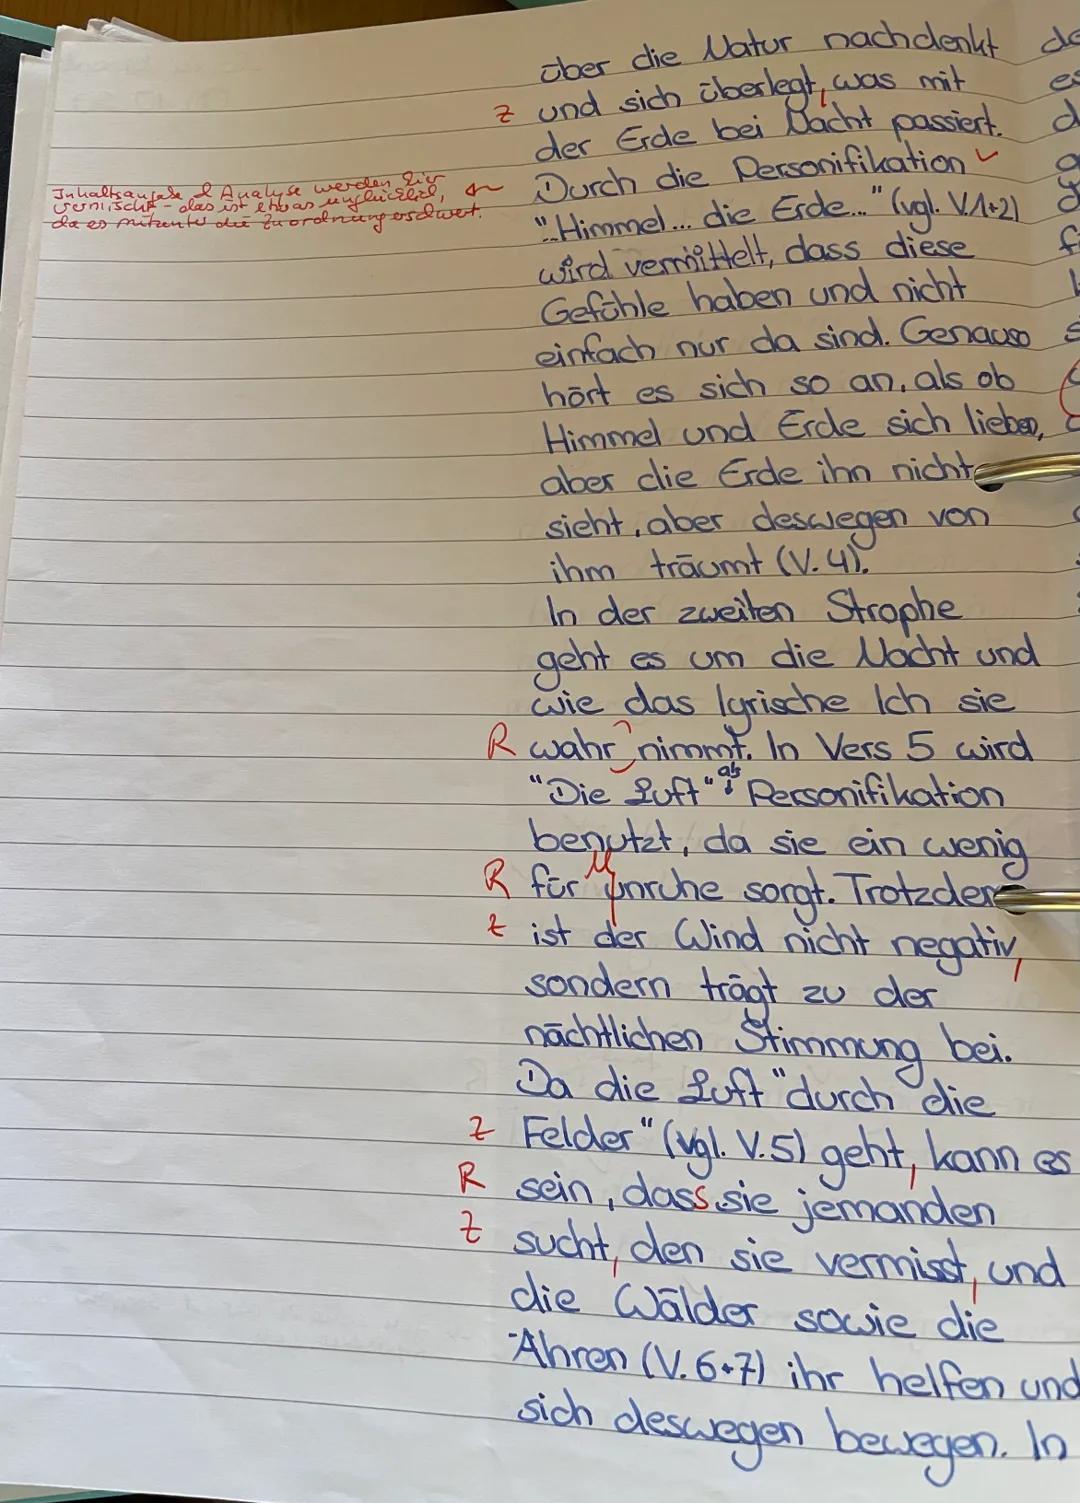 über die Natur nachdenkt
Z und sich überlegt, was mit
der Erde bei Nacht passiert.
Inhaltsangabe & Analyse werden hier
vermischt - das ist etwas unglücklich,
da es mitunter die Zuordnung erschwert.
Durch die Personifikation ✓
"...Himmel... die Erde..." (vgl. V.1+2)
wird vermittelt, dass diese
Gefühle haben und nicht
einfach nur da sind. Genauso
hört es sich so an, als ob
Himmel und Erde sich lieben,
aber die Erde ihn nicht
sieht, aber deswegen von
ihm träumt (V.4).
In der zweiten Strophe
geht es um die Nacht und
wie das lyrische Ich sie
R wahr nimmt. In Vers 5 wird
"Die Luft" als Personifikation
benutzt, da sie ein wenig
R für Unruhe sorgt. Trotzdem
Z ist der Wind nicht negativ,
sondern trägt zu der
nächtlichen Stimmung bei.
Da die Luft "durch die
Z Felder" (vgl. V.5) geht, kann es
R sein, dass sie jemanden
Z sucht, den sie vermisst, und
die Wälder sowie die
Ähren (V.6+7) ihr helfen und
sich deswegen bewegen. In